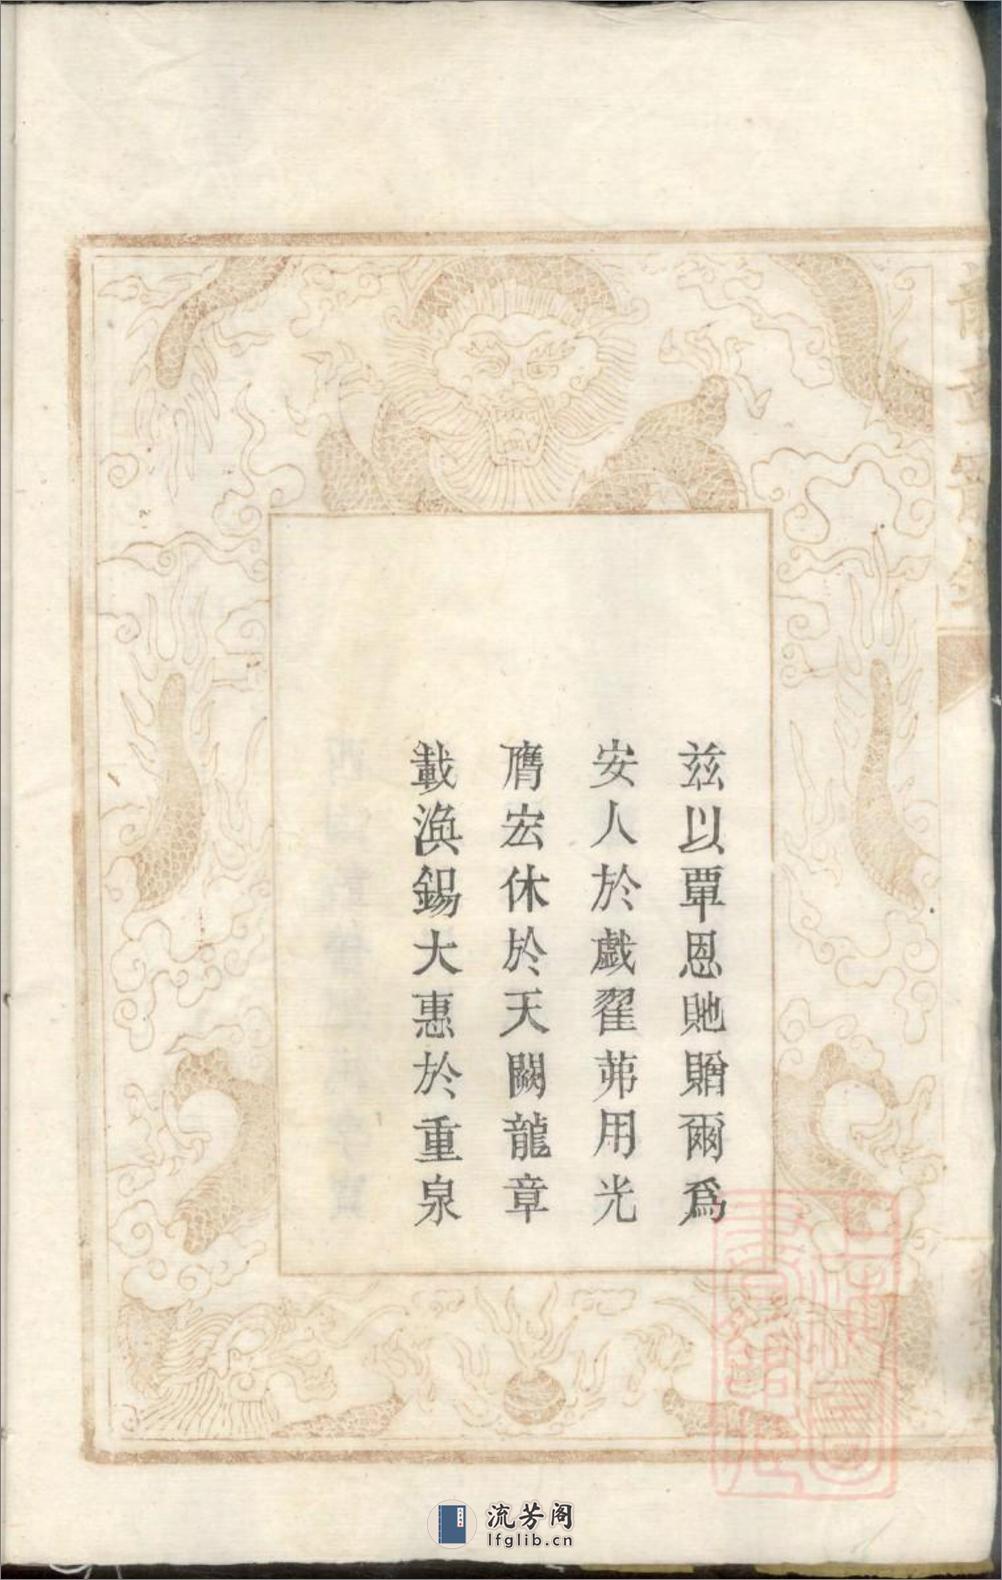 茲以覃恩貤贈爾爲
安人於戲翟茀用光
膺宏休於天闕龍章
載渙錫大惠於重泉
流芳阁
lfglib.cn